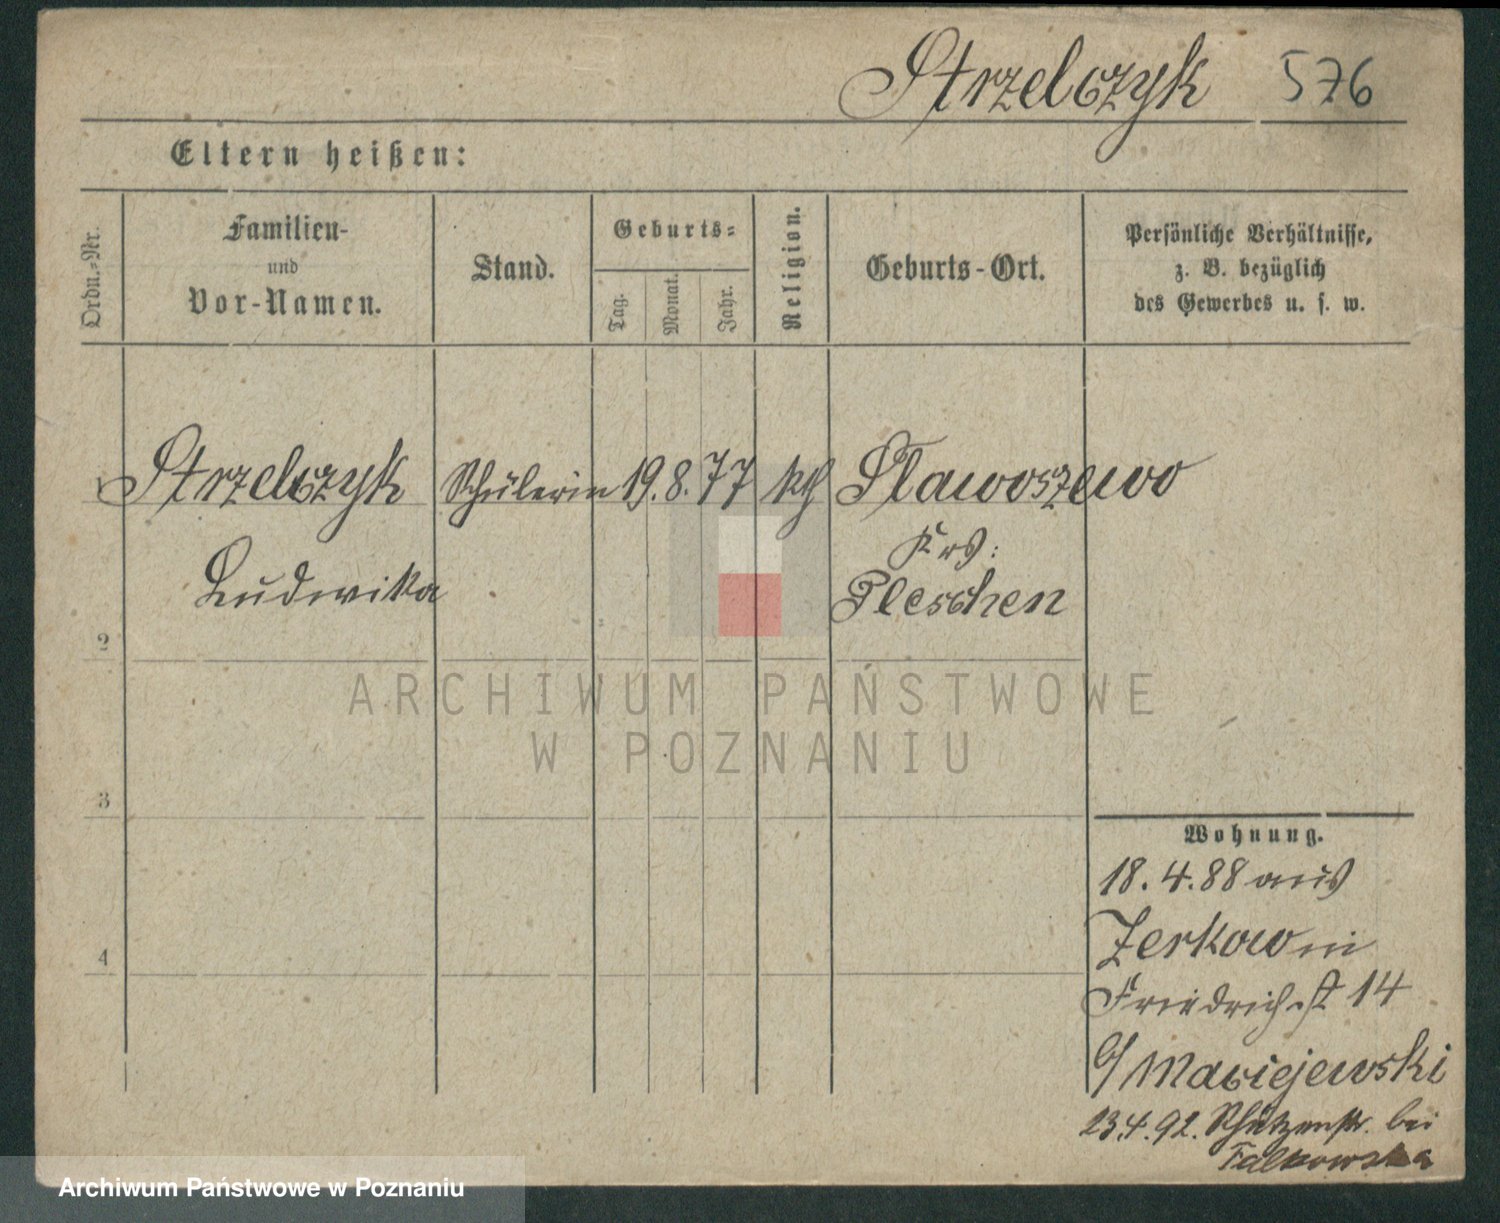 Strzelczyk 576
Eltern heißen:
Ordn.-Nr.
Familien-
und
Vor-Namen.
Stand.
Geburts-
Tag.
Monat.
Jahr.
Religion.
Geburts-Ort.
Persönliche Verhältnisse,
z. B. bezüglich
des Gewerbes u. s. w.
1 Strzelczyk Schülerin 19. 8. 77 kth Slawoszewo
Krs:
Ludwika Pleschen
2
3
4
ARCHIWUM PAŃSTWOWE
W POZNANIU
Wohnung.
18. 4. 88 aus
Zerkow in
Friedrichst 14
b/ Maciejewski
23.4.92. Schützenstr. bei
Falkowska
Archiwum Państwowe w Poznaniu